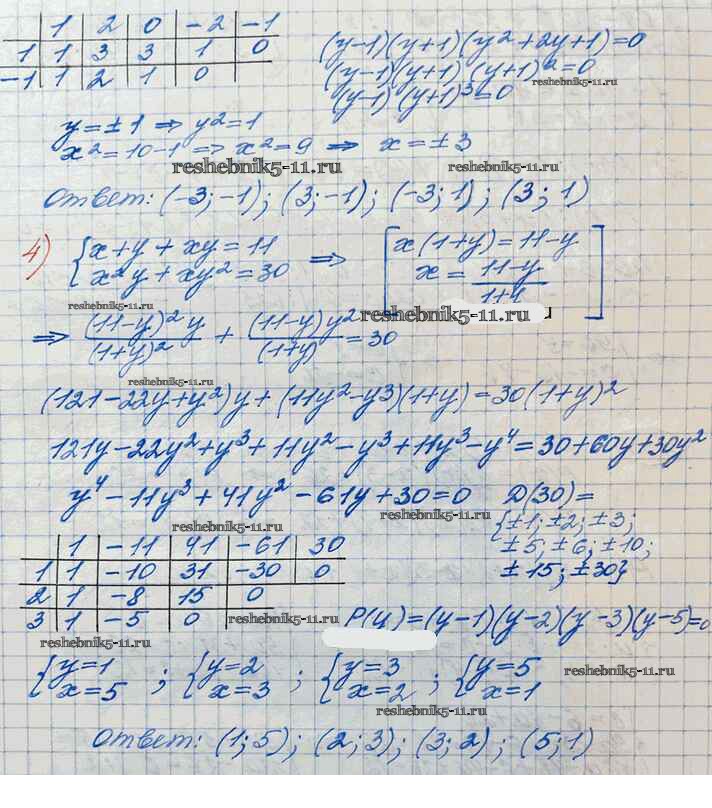 1 2 0 -2 -1
1 1 3 3 1 0
-1 1 2 1 0
(y-1)(y+1)(y²+2y+1)=0
(y-1)(y+1)(y+1)²=0
(y-1)(y+1)³=0
reshebnik5-11.ru
y=±1 ⇒ y²=1
x²=10-1 ⇒ x²=9 ⇒ x=±3
reshebnik5-11.ru
reshebnik5-11.ru
Ответ: (-3;-1); (3;-1); (-3;1); (3;1)
4) {x+y+xy=11
x²y+xy²=30 ⇒
[x(1+y)=11-y
x=(11-y)/(1+y)]
reshebnik5-11.ru
reshebnik5-11.ru
⇒ (11-y)²y/(1+y)² + (11-y)y²/(1+y) = 30
reshebnik5-11.ru
(121-22y+y²)y+(11y²-y3)(1+y)=30(1+y)²
121y-22y²+y³+11y²-y³+11y³-y⁴=30+60y+30y²
y⁴-11y³+41y²-61y+30=0
D(30)=
{±1;±2;±3;
±5;±6;±10;
±15;±30}
reshebnik5-11.ru
reshebnik5-11.ru
1 -11 41 -61 30
1 1 -10 31 -30 0
2 1 -8 15 0
3 1 -5 0
reshebnik5-11.ru
P(y)=(y-1)(y-2)(y-3)(y-5)=0
reshebnik5-11.ru
{y=1
x=5 ;
{y=2
x=3 ;
{y=3
x=2 ;
{y=5
x=1
reshebnik5-11.ru
reshebnik5-11.ru
Ответ: (1;5); (2;3); (3;2); (5;1)